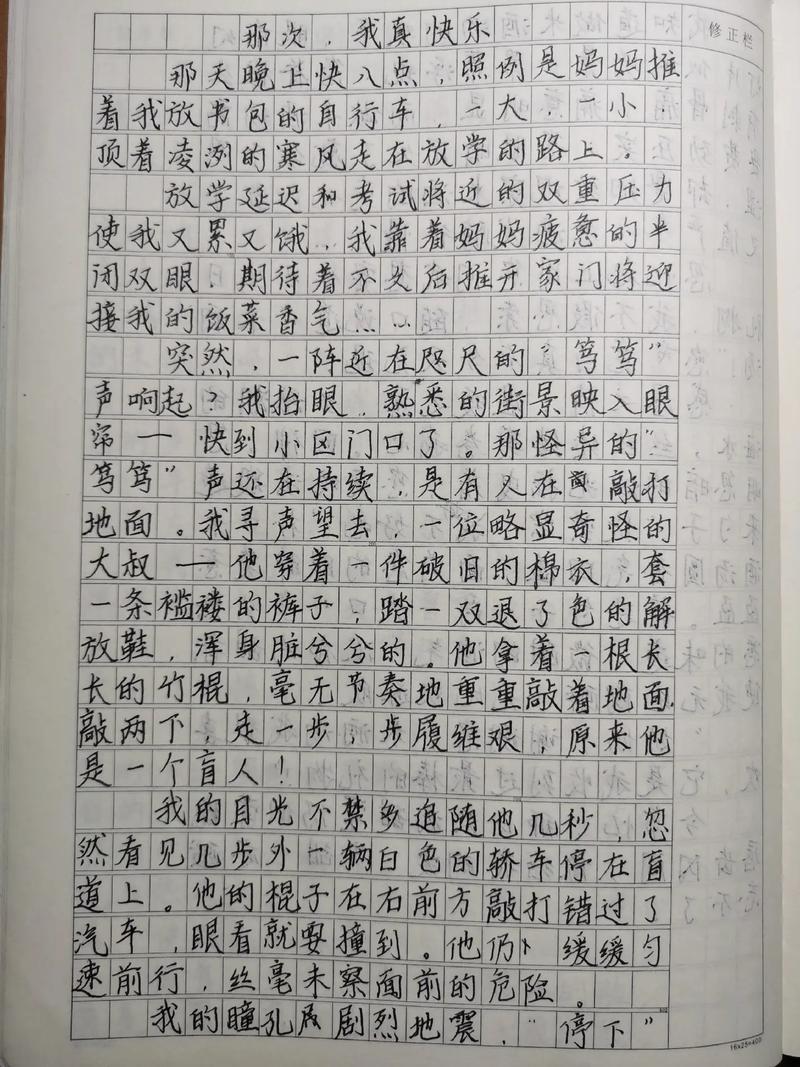 那次，我真快乐
修正栏
那天晚上快八点，照例是妈妈推
着我放书包的自行车，一大，一小，
顶着凌洌的寒风走在放学的路上。
放学延迟和考试将近的双重压力
使我又累又饿，我靠着妈妈疲惫的半
闭双眼，期待着不久后推开家门将迎
接我的饭菜香气……
突然，一阵近在咫尺的“笃笃”
声响起？我抬眼，熟悉的街景映入眼
帘——快到小区门口了。那怪异的“
笃笃”声还在持续，是有人在敲打
地面。我寻声望去，一位略显奇怪的
大叔——他穿着一件破旧的棉衣，套
一条褴褛的裤子，踏一双退了色的解
放鞋，浑身脏兮兮的。他拿着一根长
长的竹棍，毫无节奏地重重敲着地面，
敲两下，走一步，步履维艰，原来他
是一个盲人！
我的目光不禁多追随他几秒，忽
然看见几步外一辆白色的轿车停在盲
道上。他的棍子在右前方敲打错过了
汽车，眼看就要撞到。他仍缓缓匀
速前行，丝毫未察面前的危险。
我的瞳孔剧烈地震，“停下”
16x25=400